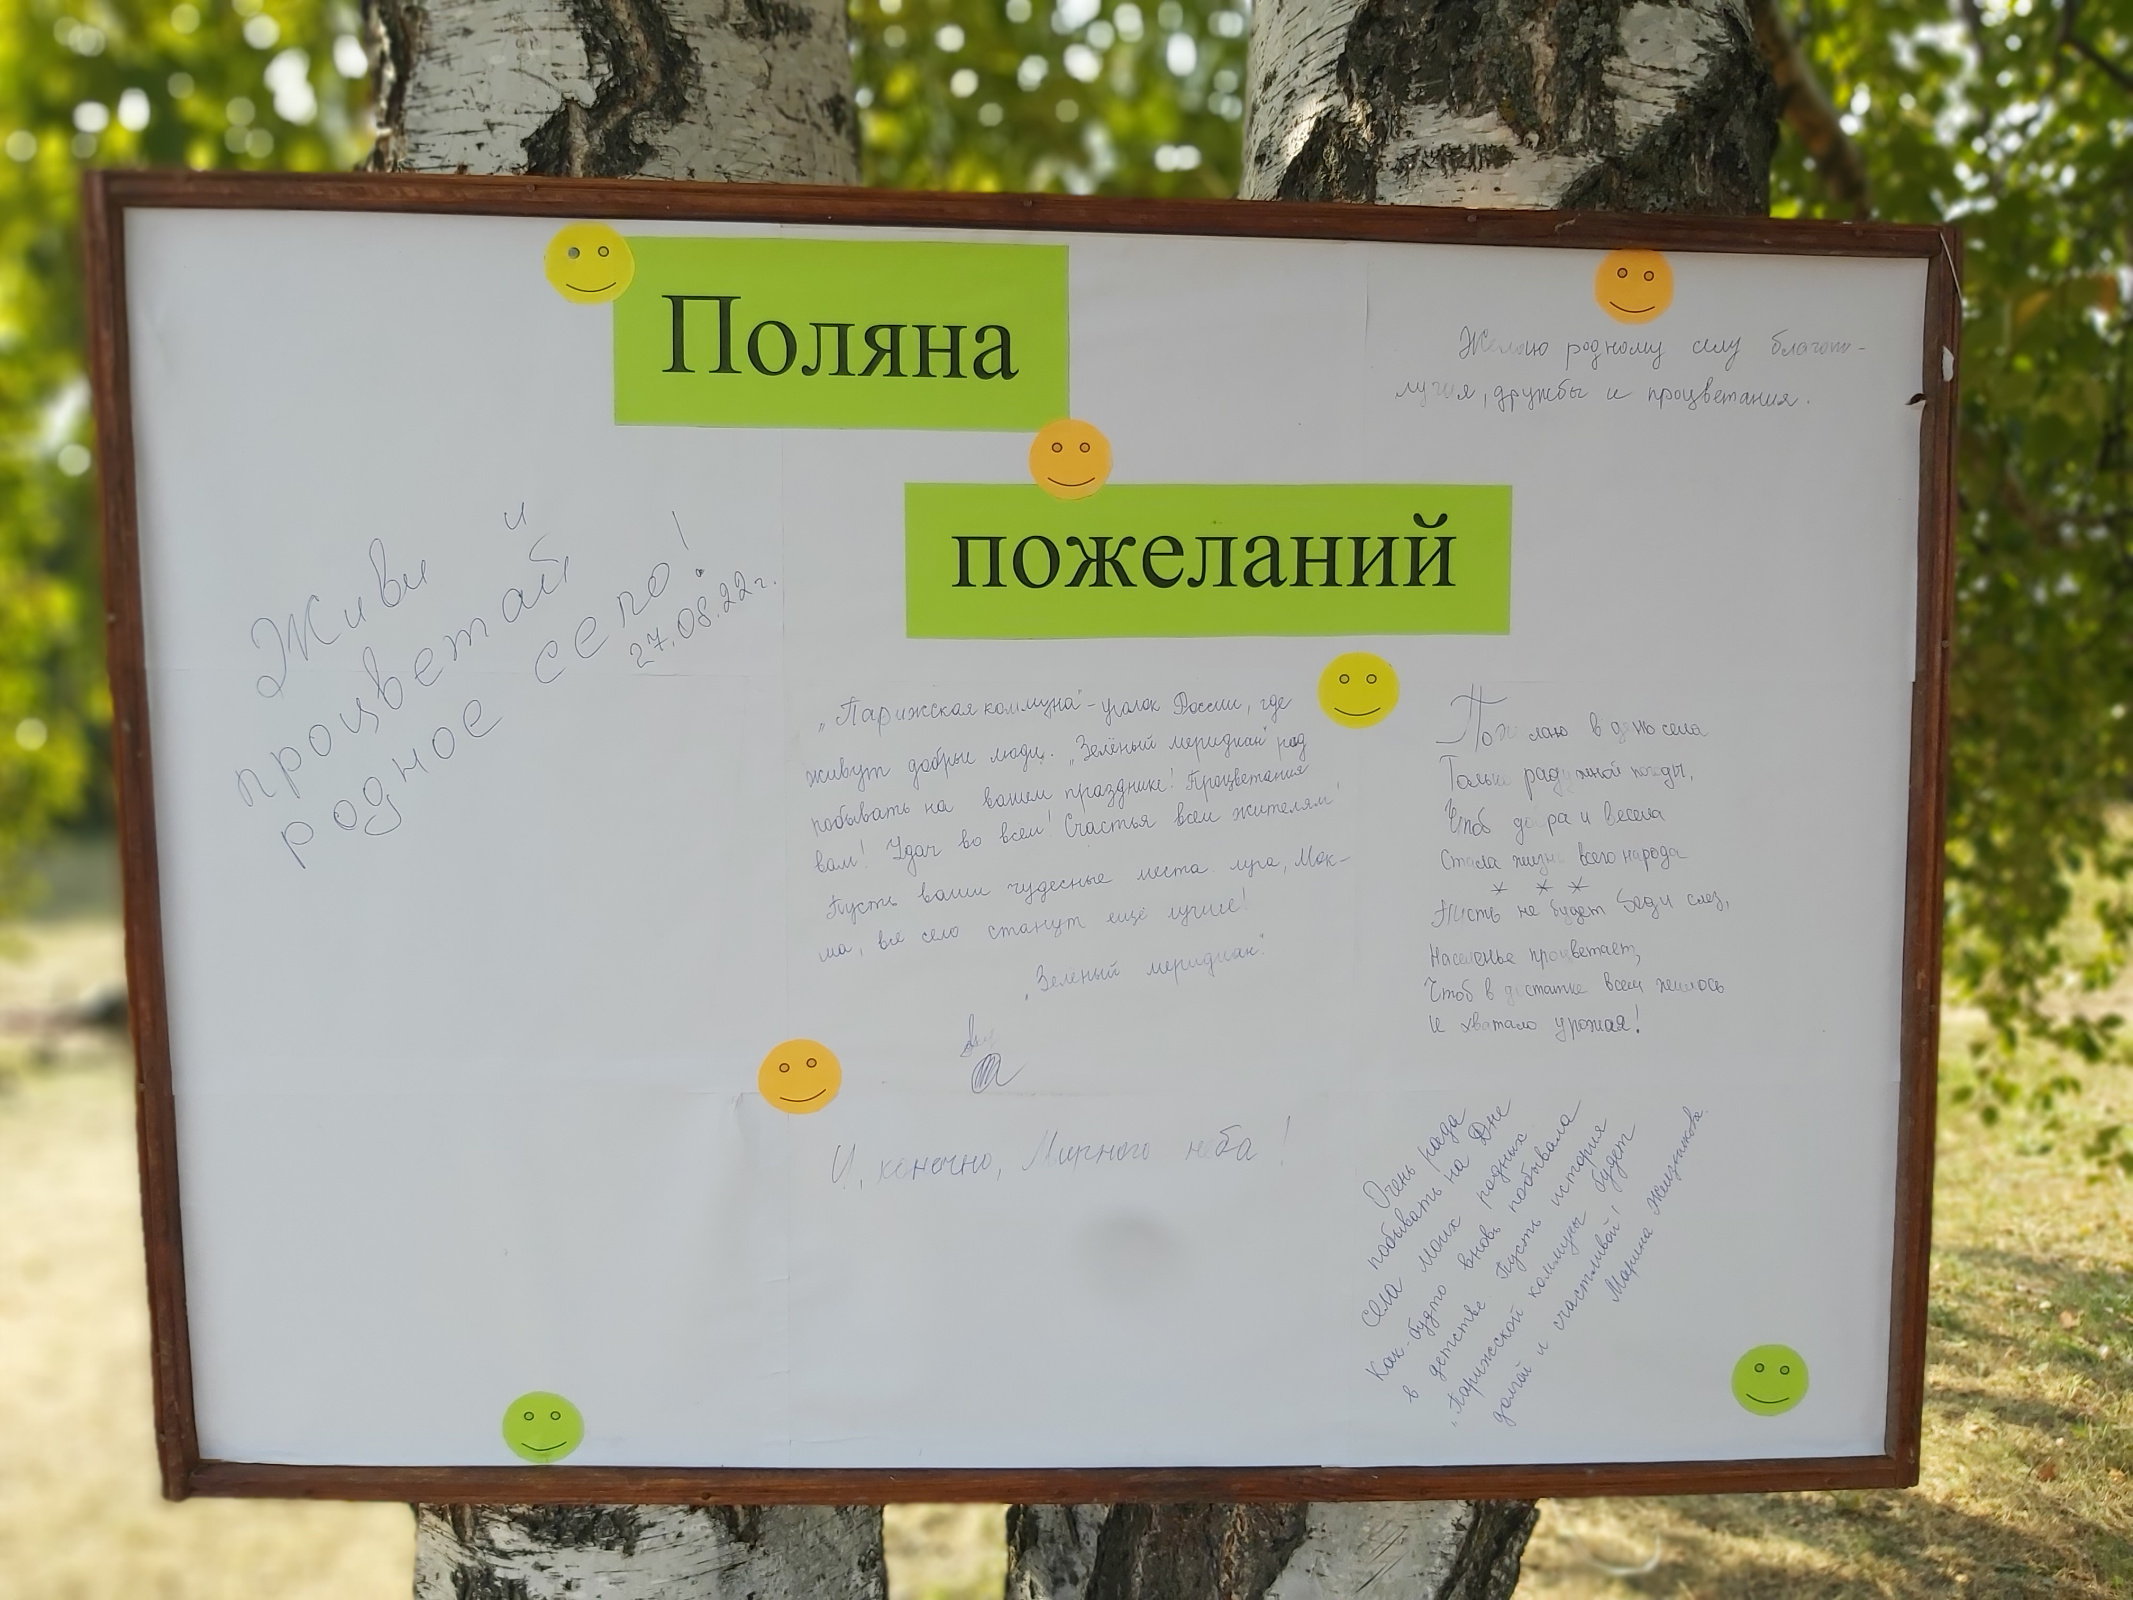 Поляна
пожеланий
Желаю родному селу благопо-
лучия, дружбы и процветания.
Живи и
процветай
родное село!
27.08.22г.
„Парижская коммуна" - уголок России, где
живут добрые люди. „Зелёный меридиан" рад
побывать на вашем празднике! Процветания
вам! Удач во всём! Счастья всем жителям!
Пусть ваши чудесные места луга, Мок-
ша, всё село станут ещё лучше!
„Зелёный меридиан."
И, конечно, Мирного неба!
Пожелаю в день села
Только радужной погоды,
Чтоб добра и весела
Стала жизнь всего народа
* * *
Пусть не будет беди слез,
Населенье процветает,
Чтоб в достатке всем жилось
И хватало урожая!
Очень рада
побывать на Дне
села моих родных.
Как-будто вновь побывала
в детстве Пусть история
„Парижской коммуны будет
долгой и счастливой!
Марина